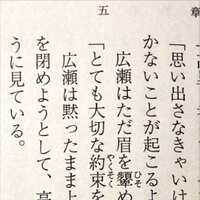 章
五
「思い出さなきゃいけ
かないことが起こるよ
広瀬はただ眉を顰め
ひそ
「とても大切な約束を
やくそく
広瀬は黙ったまま上
を閉めようとして、
うに見ている。